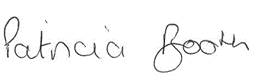 Patricia Booth